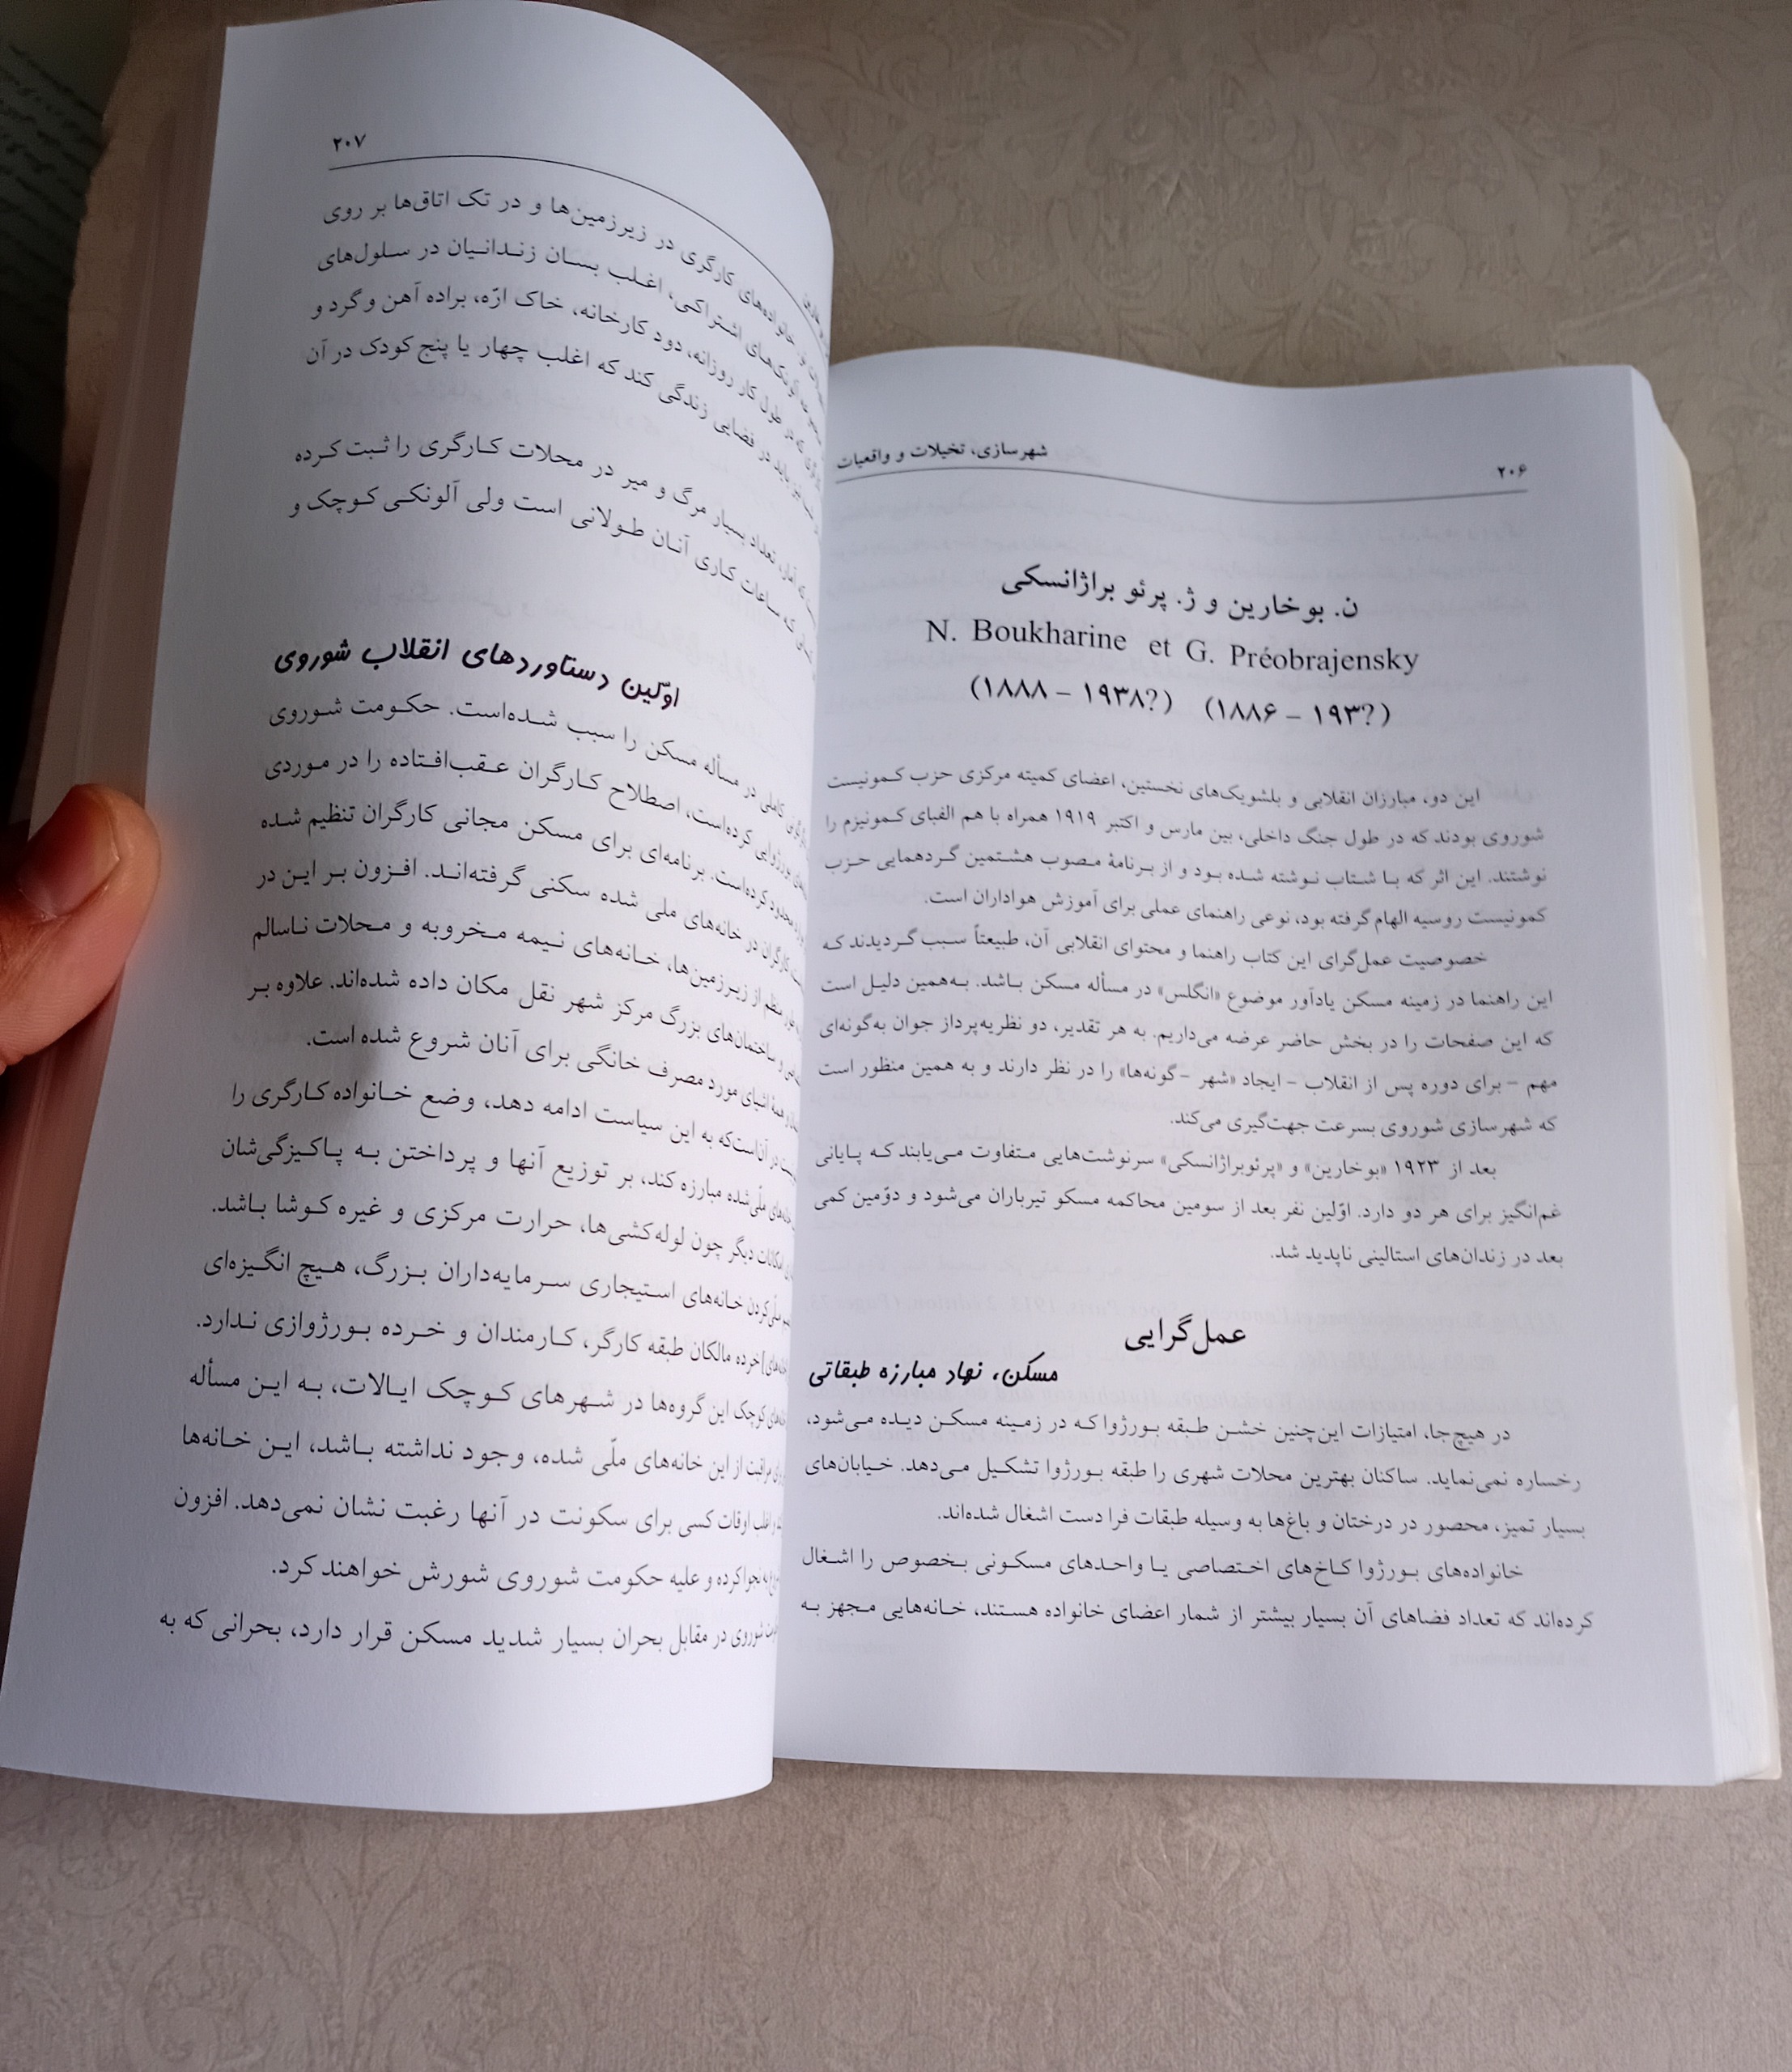 ۲۰۶
شهرسازی، تخیلات و واقعیات
ن. بوخارین و ژ. پرئو براژانسکی
N. Boukharine et G. Préobrajensky
(۱۸۸۸ – ۱۹۳۸?) (۱۸۸۶ – ۱۹۳?)
این دو، مبارزان انقلابی و بلشویک‌های نخستین، اعضای کمیته مرکزی حزب کمونیست
شوروی بودند که در طول جنگ داخلی، بین مارس و اکتبر ۱۹۱۹ همراه با هم الفبای کمونیزم را
نوشتند. این اثر که با شتاب نوشته شده بود و از برنامهٔ مصوب هشتمین گردهمایی حزب
کمونیست روسیه الهام گرفته بود، نوعی راهنمای عملی برای آموزش هواداران است.
خصوصیت عمل‌گرای این کتاب راهنما و محتوای انقلابی آن، طبیعتاً سبب گردیدند که
این راهنما در زمینه مسکن یادآور موضوع «انگلس» در مسأله مسکن باشد. به‌همین دلیل است
که این صفحات را در بخش حاضر عرضه می‌داریم. به هر تقدیر، دو نظریه‌پرداز جوان به‌گونه‌ای
مهم – برای دوره پس از انقلاب – ایجاد «شهر – گونه‌ها» را در نظر دارند و به همین منظور است
که شهرسازی شوروی بسرعت جهت‌گیری می‌کند.
بعد از ۱۹۲۳ «بوخارین» و «پرئوبراژانسکی» سرنوشت‌هایی متفاوت می‌یابند که پایانی
غم‌انگیز برای هر دو دارد. اوّلین نفر بعد از سومین محاکمه مسکو تیرباران می‌شود و دوّمین کمی
بعد در زندان‌های استالینی ناپدید شد.
عمل‌گرایی
مسکن، نهاد مبارزه طبقاتی
در هیچ‌جا، امتیازات این‌چنین خشن طبقه بورژوا که در زمینه مسکن دیده می‌شود،
رخساره نمی‌نماید. ساکنان بهترین محلات شهری را طبقه بورژوا تشکیل می‌دهد. خیابان‌های
بسیار تمیز، محصور در درختان و باغ‌ها به وسیله طبقات فرا دست اشغال شده‌اند.
خانواده‌های بورژوا کاخ‌های اختصاصی یا واحدهای مسکونی بخصوص را اشغال
کرده‌اند که تعداد فضاهای آن بسیار بیشتر از شمار اعضای خانواده هستند، خانه‌هایی مجهز به
۲۰۷
خانواده‌های کارگری در زیرزمین‌ها و در تک اتاق‌ها بر روی
آلونک‌های اشتراکی، اغلب بسان زندانیان در سلول‌های
در طول کار روزانه، دود کارخانه، خاک ارّه، براده آهن و گرد و
باید در فضایی زندگی کند که اغلب چهار یا پنج کودک در آن
آمار، تعداد بسیار مرگ و میر در محلات کارگری را ثبت کرده
که ساعات کاری آنان طولانی است ولی آلونکی کوچک و
اوّلین دستاوردهای انقلاب شوروی
کاملی در مسأله مسکن را سبب شده‌است. حکومت شوروی
بورژوایی کرده‌است، اصطلاح کارگران عقب‌افتاده را در موردی
محدود کرده‌است. برنامه‌ای برای مسکن مجانی کارگران تنظیم شده
کارگران در خانه‌های ملی شده سکنی گرفته‌اند. افزون بر این در
منظم از زیرزمین‌ها، خانه‌های نیمه مخروبه و محلات ناسالم
و ساختمان‌های بزرگ مرکز شهر نقل مکان داده شده‌اند. علاوه بر
همهٔ اشیای مورد مصرف خانگی برای آنان شروع شده است.
در آن‌است‌که به این سیاست ادامه دهد، وضع خانواده کارگری را
خانه‌های ملّی‌شده مبارزه کند، بر توزیع آنها و پرداختن به پاکیزگی‌شان
امکانات دیگر چون لوله‌کشی‌ها، حرارت مرکزی و غیره کوشا باشد.
ملّی‌کردن خانه‌های استیجاری سرمایه‌داران بزرگ، هیچ انگیزه‌ای
خرده مالکان طبقه کارگر، کارمندان و خرده بورژوازی ندارد.
کوچک این گروه‌ها در شهرهای کوچک ایالات، به این مسأله
مراقبت از این خانه‌های ملّی شده، وجود نداشته باشد، این خانه‌ها
اغلب اوقات کسی برای سکونت در آنها رغبت نشان نمی‌دهد. افزون
نجوا کرده و علیه حکومت شوروی شورش خواهند کرد.
شوروی در مقابل بحران بسیار شدید مسکن قرار دارد، بحرانی که به